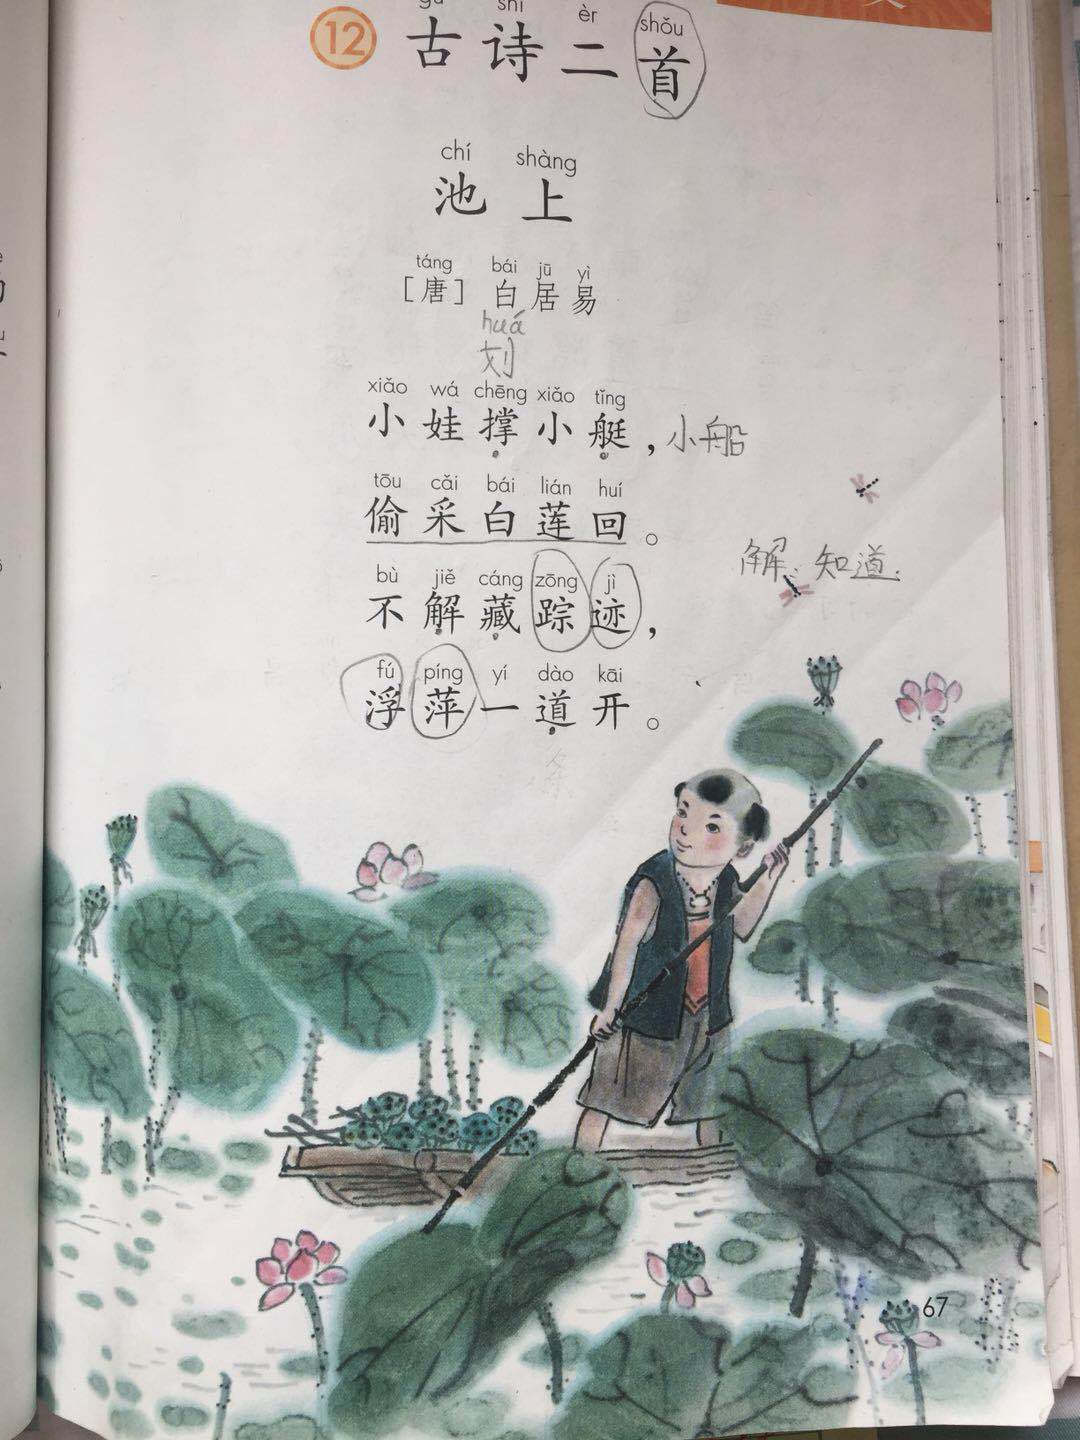 shī èr shǒu
12 古诗二首
chí shàng
池上
táng bái jū yì
[唐] 白居易
huá
划
xiǎo wá chēng xiǎo tǐng
小娃撑小艇，小船
tōu cǎi bái lián huí
偷采白莲回。
解：知道.
bù jiě cáng zōng jì
不解藏踪迹，
fú píng yí dào kāi
浮萍一道开。
条
67